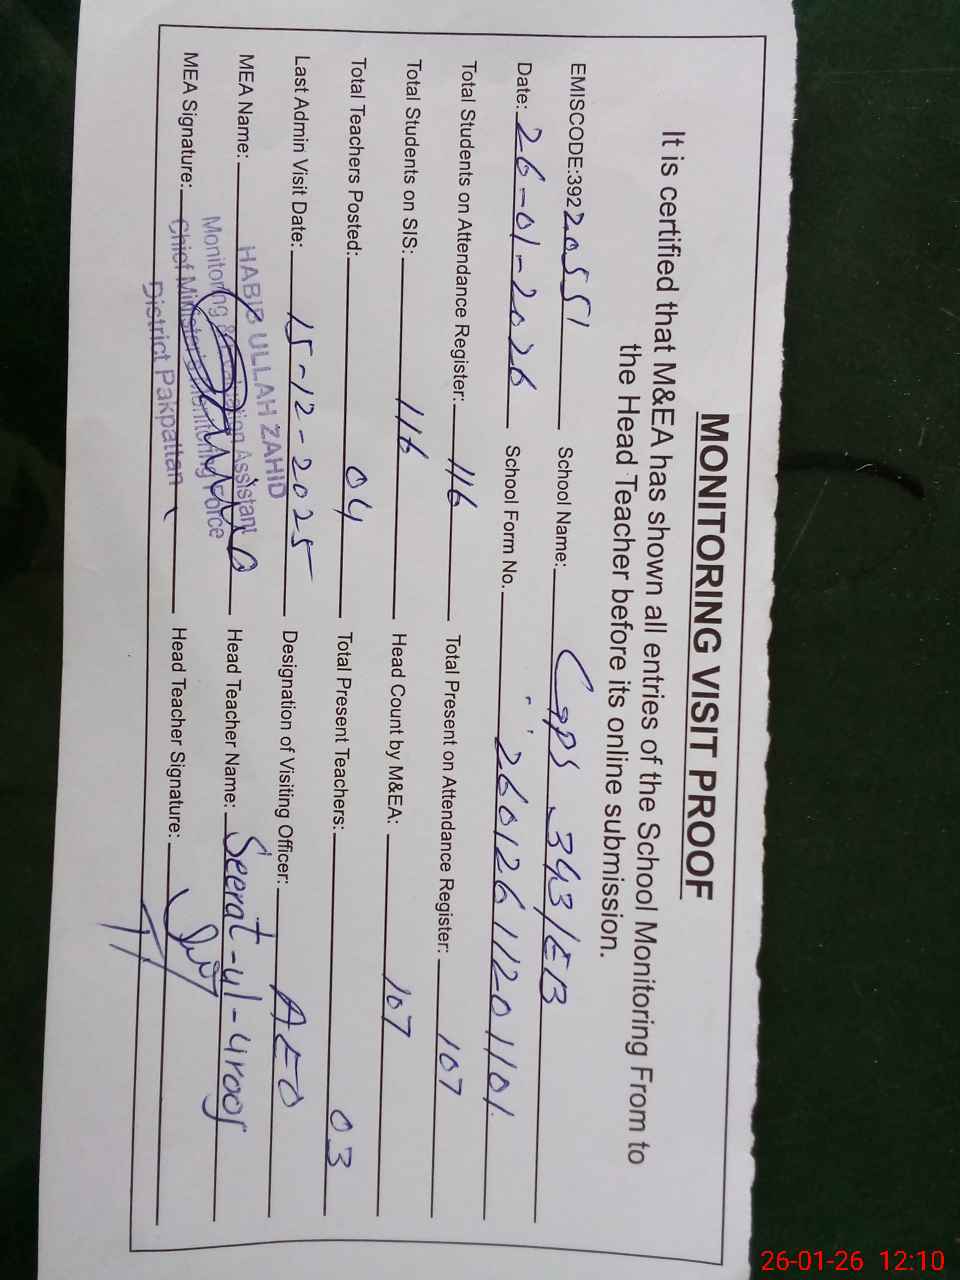 MONITORING VISIT PROOF
It is certified that M&EA has shown all entries of the School Monitoring From to
the Head Teacher before its online submission.
EMISCODE:39220551 School Name: GGPS 343/EB
Date: 26-01-2026 School Form No. 26012611201101
Total Students on Attendance Register: 116 Total Present on Attendance Register: 107
Total Students on SIS: 116 Head Count by M&EA: 107
Total Teachers Posted: 04 Total Present Teachers: 03
Last Admin Visit Date: 15-12-2025 Designation of Visiting Officer: AEO
MEA Name: HABIB ULLAH ZAHID Head Teacher Name: Seerat-ul-Uroos
Monitoring & Evaluation Assistant
MEA Signature: Chief Minister's Monitoring Force Head Teacher Signature:
District Pakpattan
26-01-26 12:10